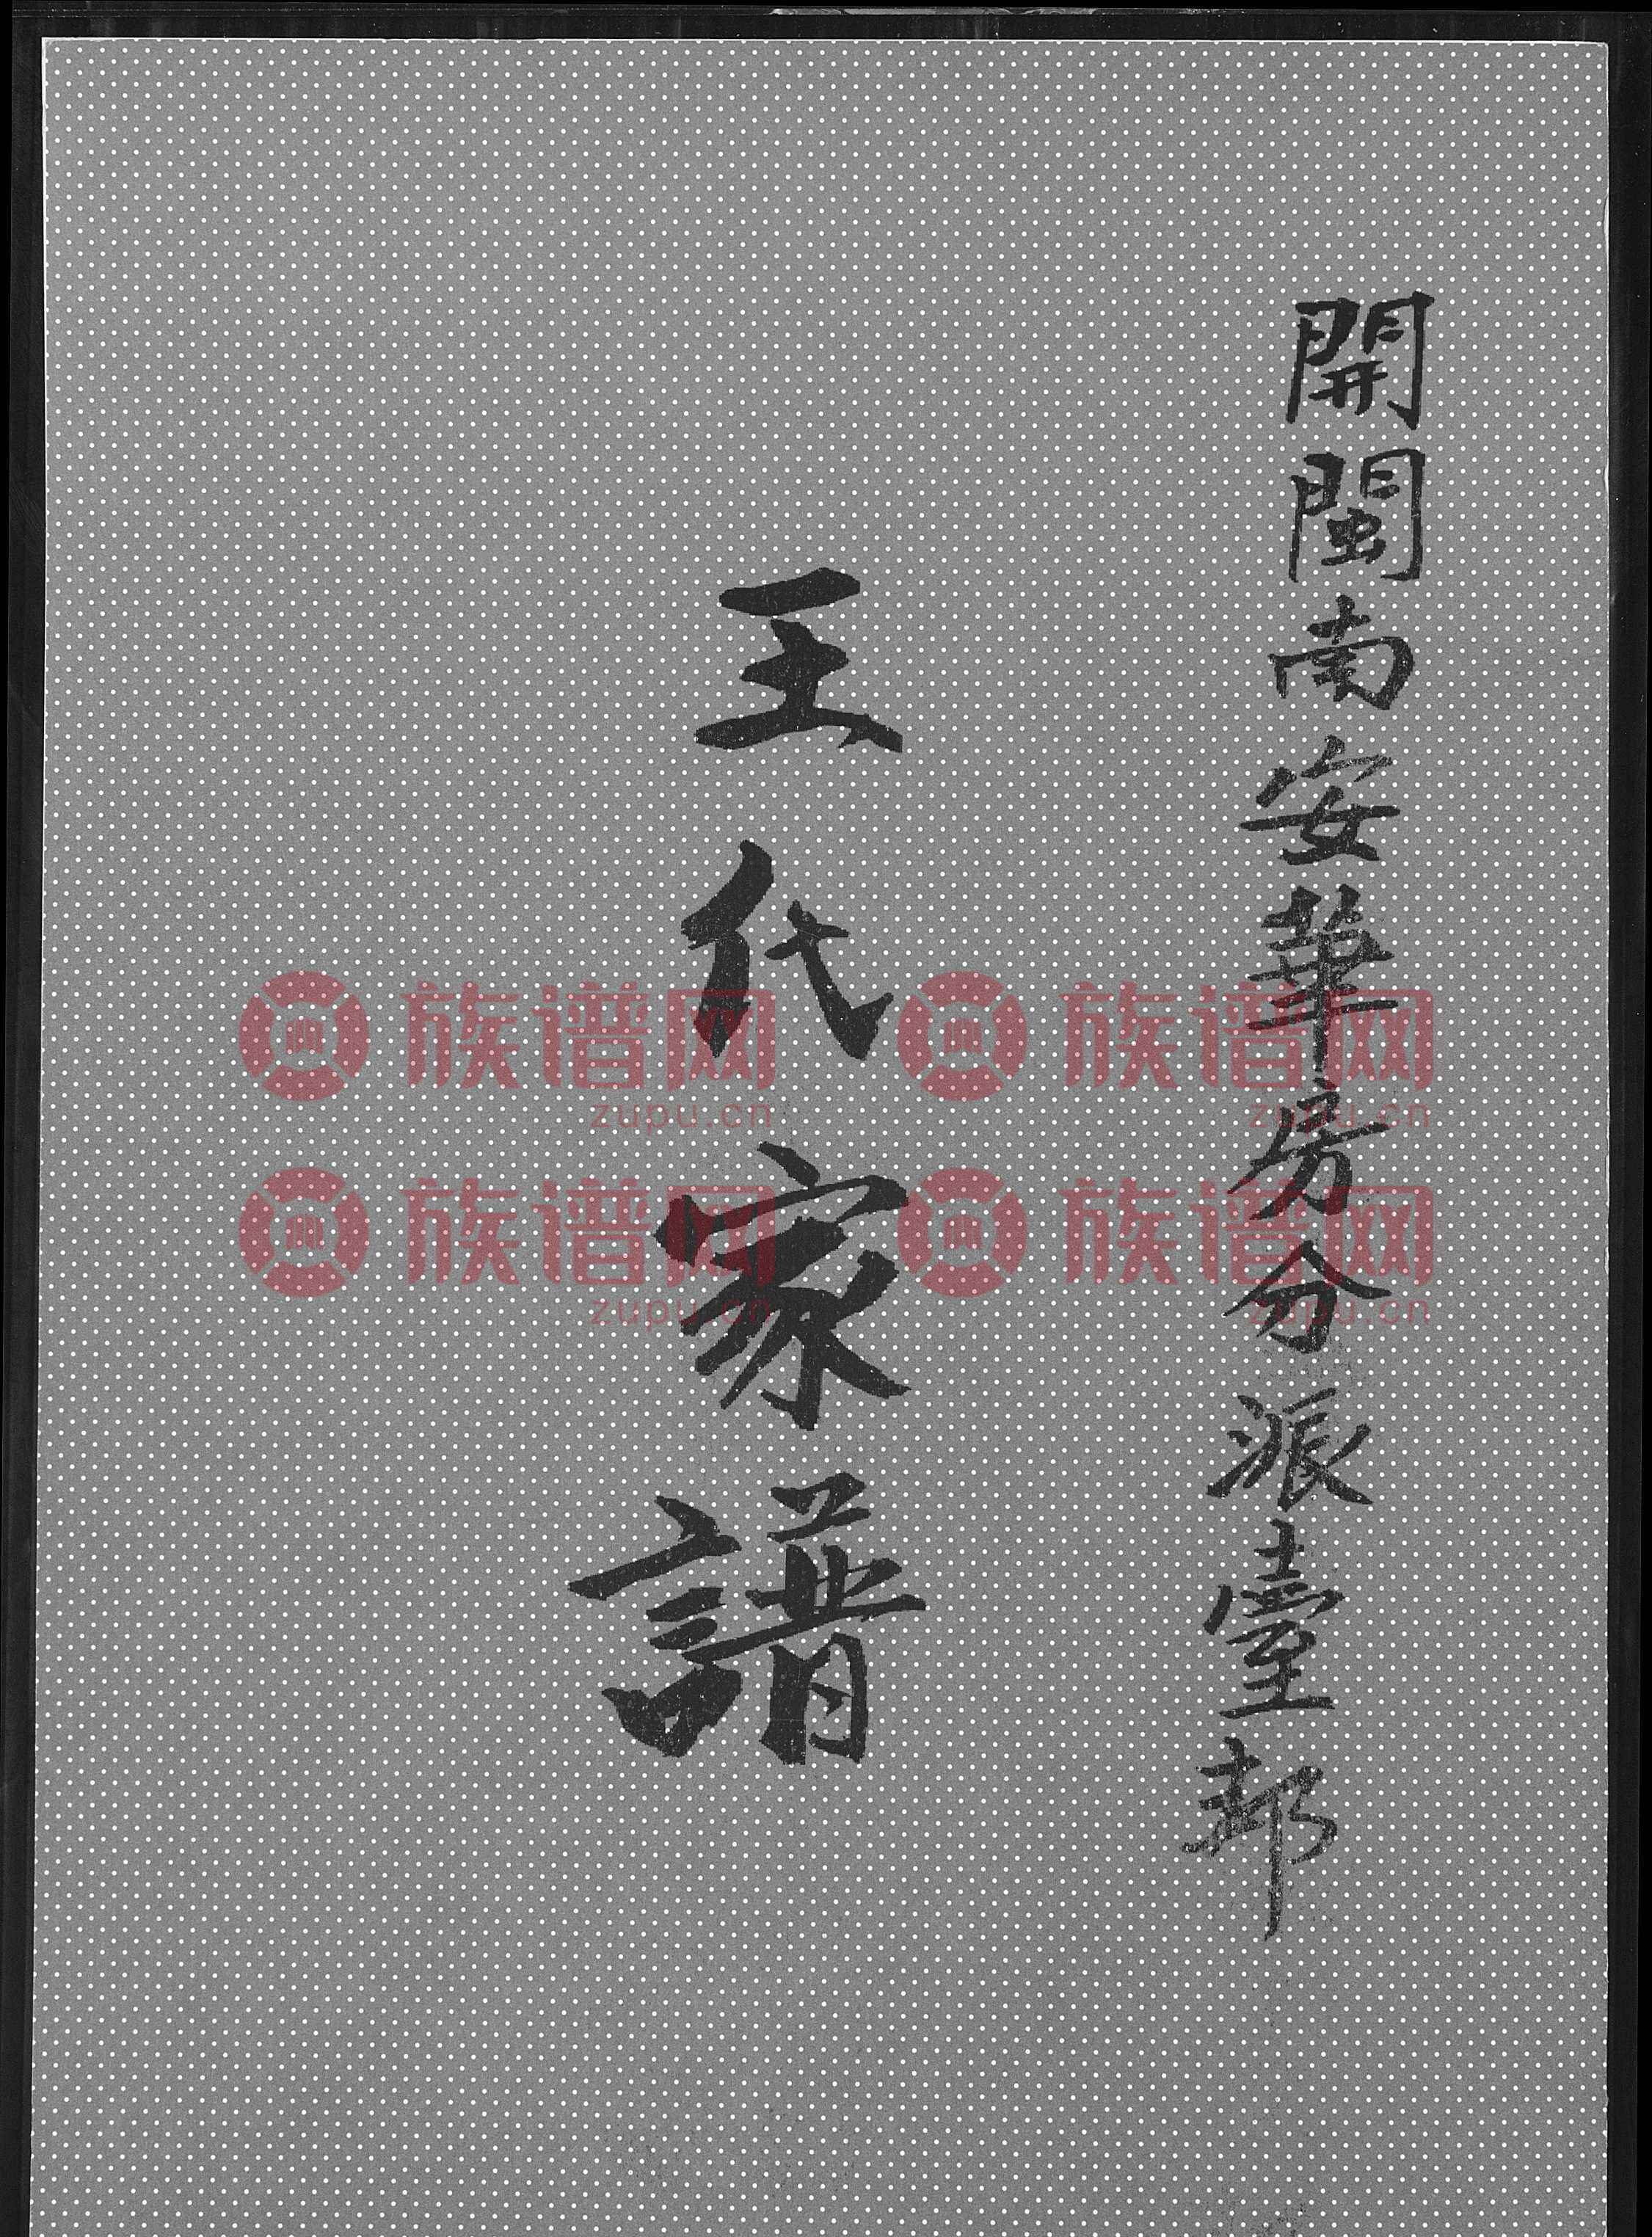 開閩南安華房分派臺邦
王代家譜
族谱网 族谱网
zupu.cn zupu.cn
族谱网 族谱网
zupu.cn zupu.cn